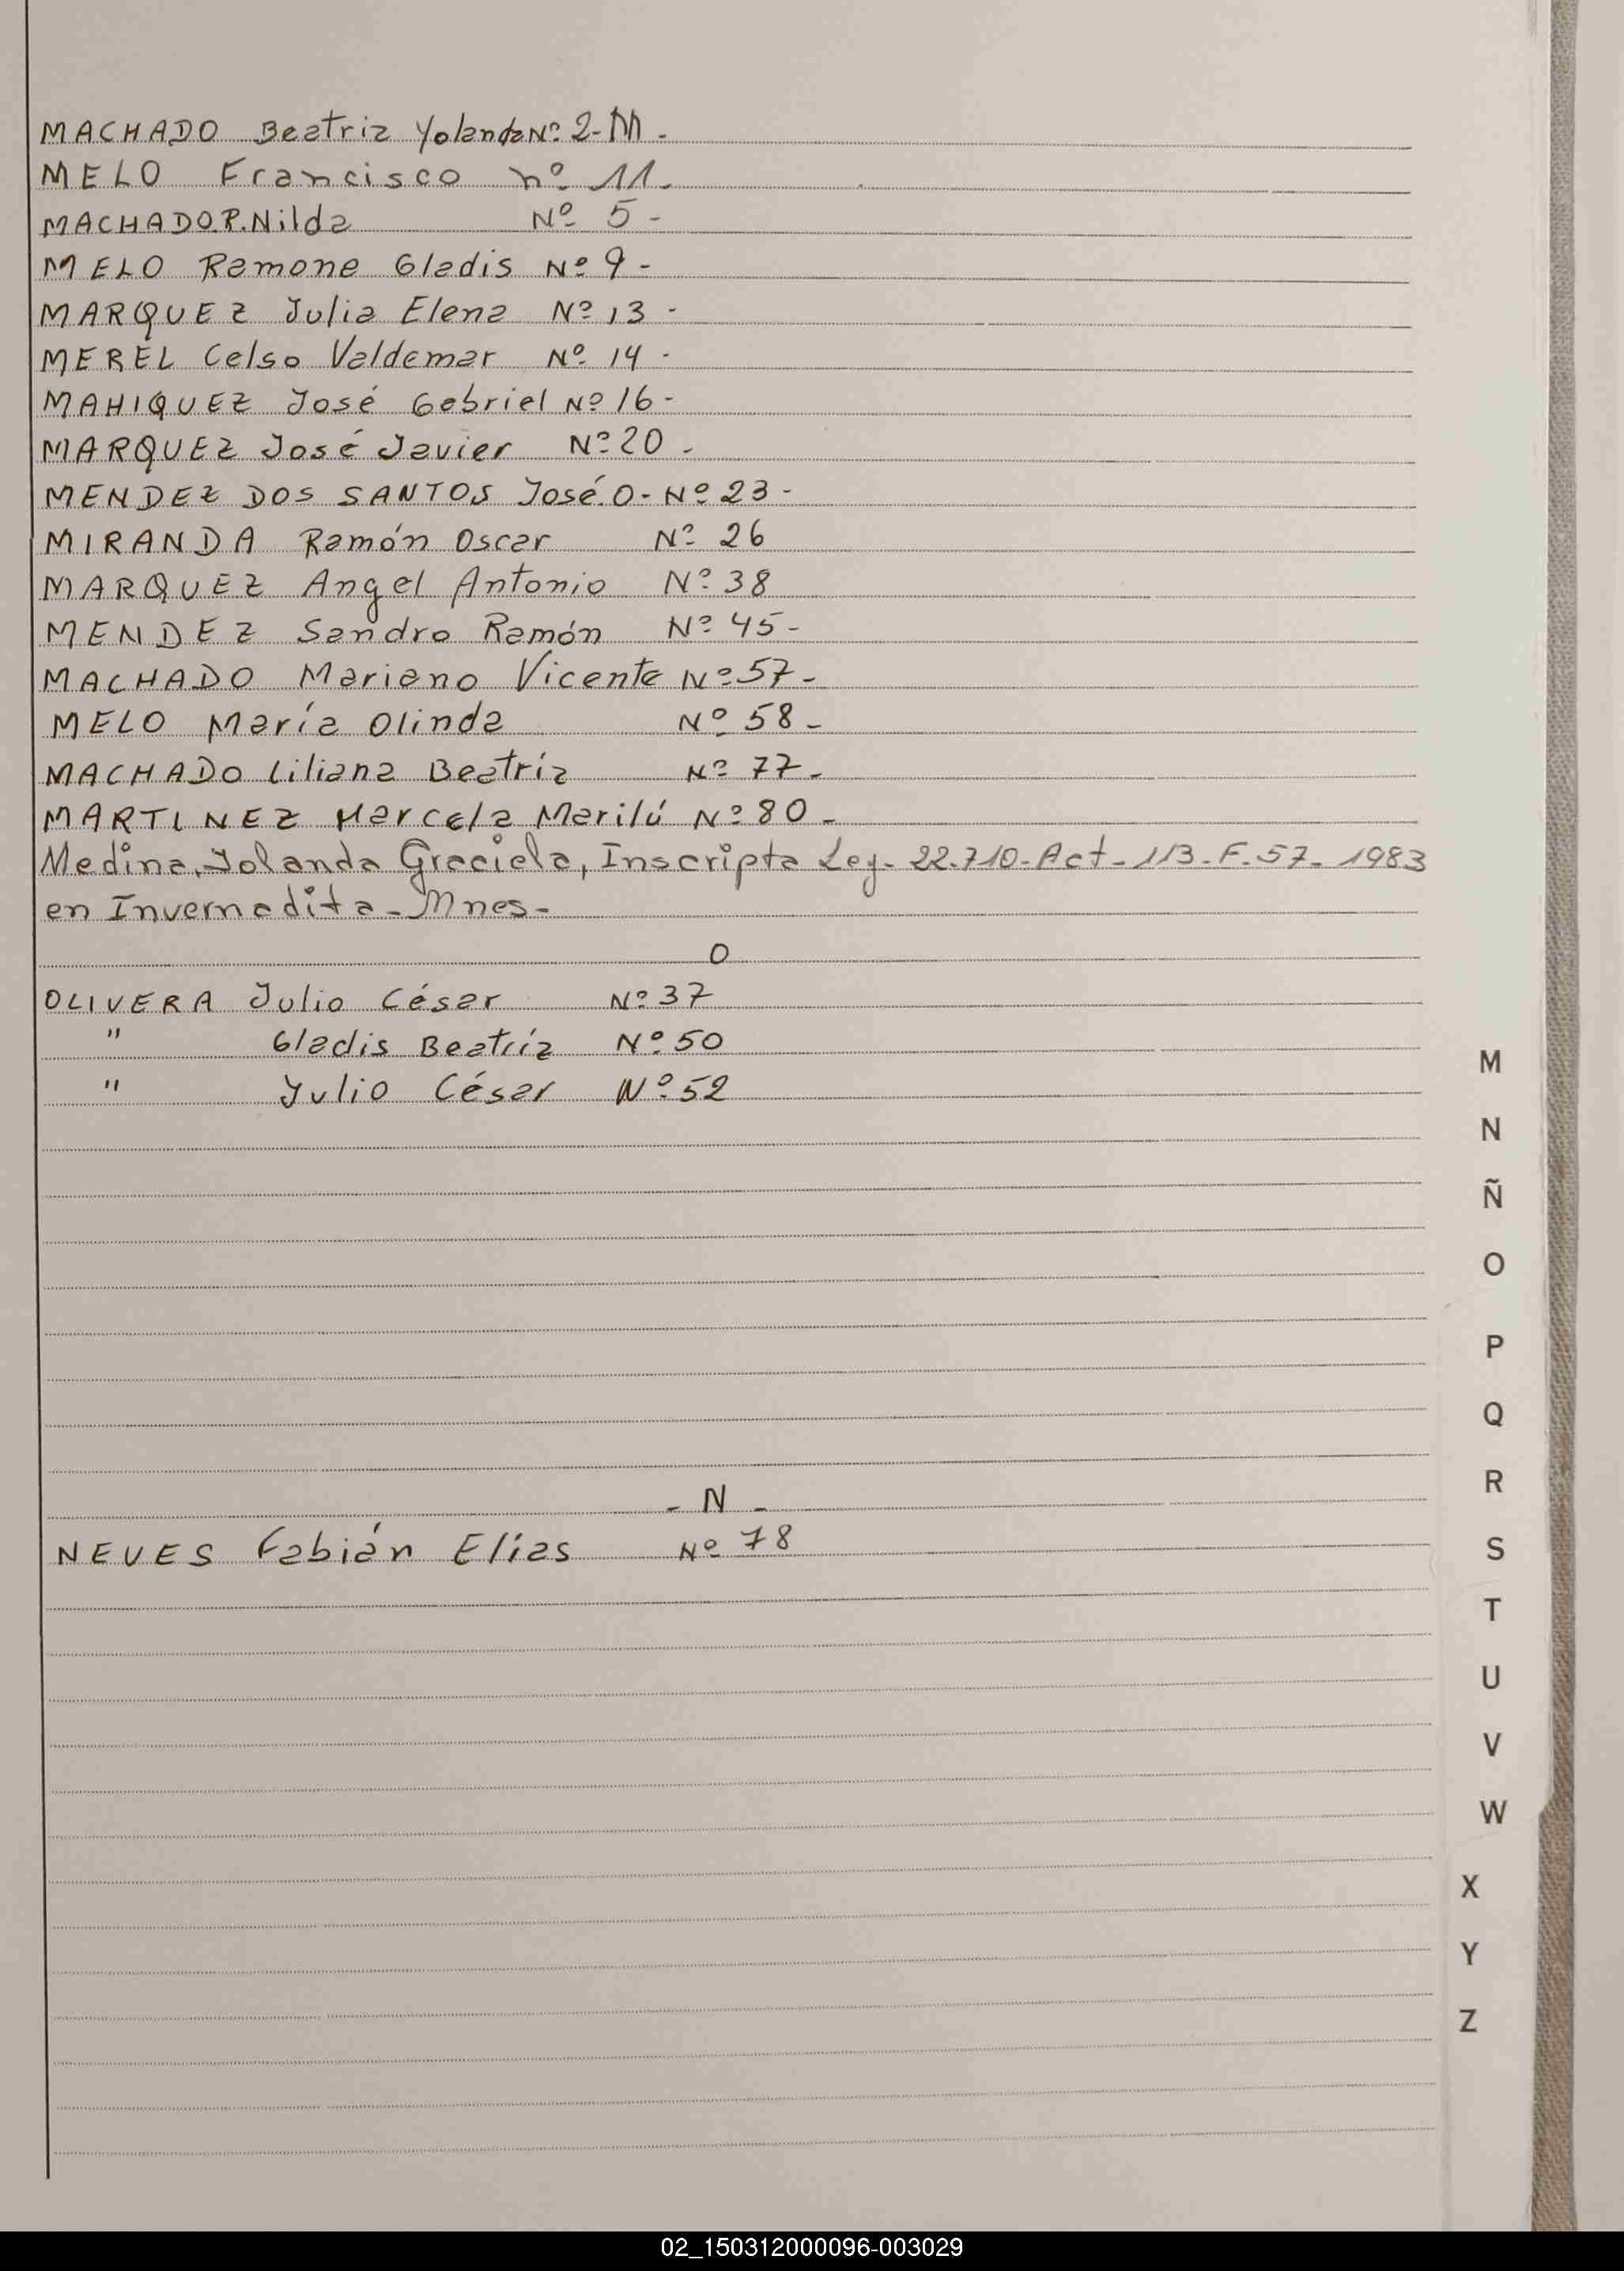 MACHADO Beatriz Yolanda Nº 2-M-
MELO Francisco nº 11-
MACHADO.P.Nilda Nº 5-
MELO Ramona Gladis Nº 9-
MARQUEZ Julia Elena Nº 13-
MEREL Celso Valdemar Nº 14-
MAHIQUEZ José Gabriel Nº 16-
MARQUEZ José Javier Nº 20-
MENDEZ DOS SANTOS José.O- Nº 23-
MIRANDA Ramón Oscar Nº 26
MARQUEZ Angel Antonio Nº 38
MENDEZ Sandro Ramón Nº 45-
MACHADO Mariano Vicente Nº 57-
MELO María Olinda Nº 58-
MACHADO Liliana Beatríz Nº 77-
MARTINEZ Marcela Marilú Nº 80-
Medina, Yolanda Graciela, Inscripta Ley- 22.710-Act-113-F.57-1983
en Invernadita-Mnes-
O
OLIVERA Julio César Nº 37
" Gladis Beatríz Nº 50
" Julio César Nº 52
- N -
NEVES Fabián Elías Nº 78
M
N
Ñ
O
P
Q
R
S
T
U
V
W
X
Y
Z
02_150312000096-003029